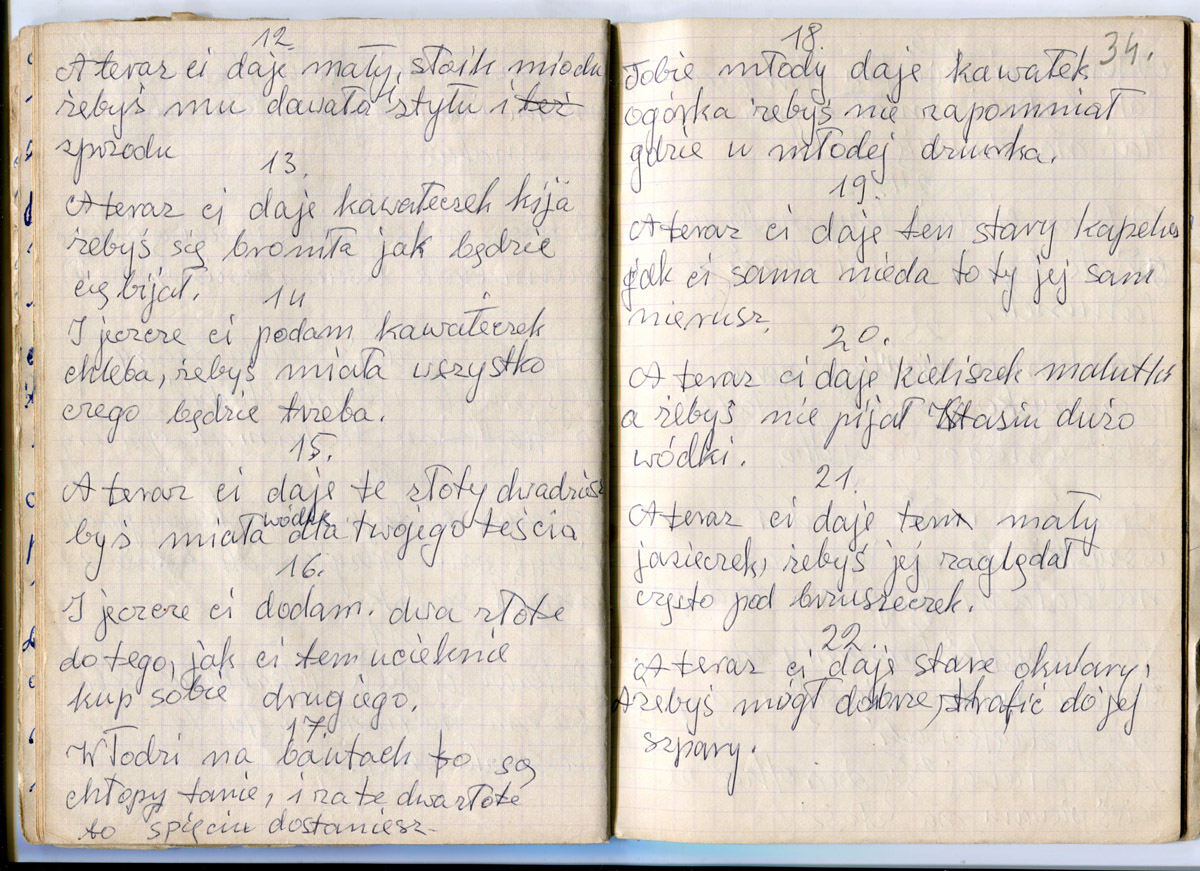 12
A teraz ci daje mały, słoik miodu
żebyś mu dawała styłu i też
zprzodu
13.
A teraz ci daje kawałeczek kija
żebyś się broniła jak będzie
cię bijał.
14
I jeszcze ci podam kawałeczek
chleba, żebyś miała wszystko
czego będzie trzeba.
15.
A teraz ci daje te złoty dwadzieś
wódkę
byś miała dla twojego teścia
16.
I jeszcze ci dodam. dwa złote
do tego, jak ci ten ucieknie
kup sobie drugiego.
17.
W Łodzi na bałtach to są
chłopy tanie, i za te dwa złote
to spięciu dostaniesz.
34.
18.
Tobie młody daje kawałek
ogórka żebyś nie zapomniał
gdzie u młodej dziurka.
19.
A teraz ci daje ten stary kapelus
jak ci sama nieda to ty jej sam
nierusz.
20.
A teraz ci daje kieliszek malutki
a żebyś nie pijał Stasiu dużo
wódki.
21.
A teraz ci daje ten mały
jasieczek, żebyś jej zaglądał
często pod brzuszeczek.
22.
A teraz ci daje stare okulary,
Ażebyś mógł dobrze, trafić do jej
szpary.